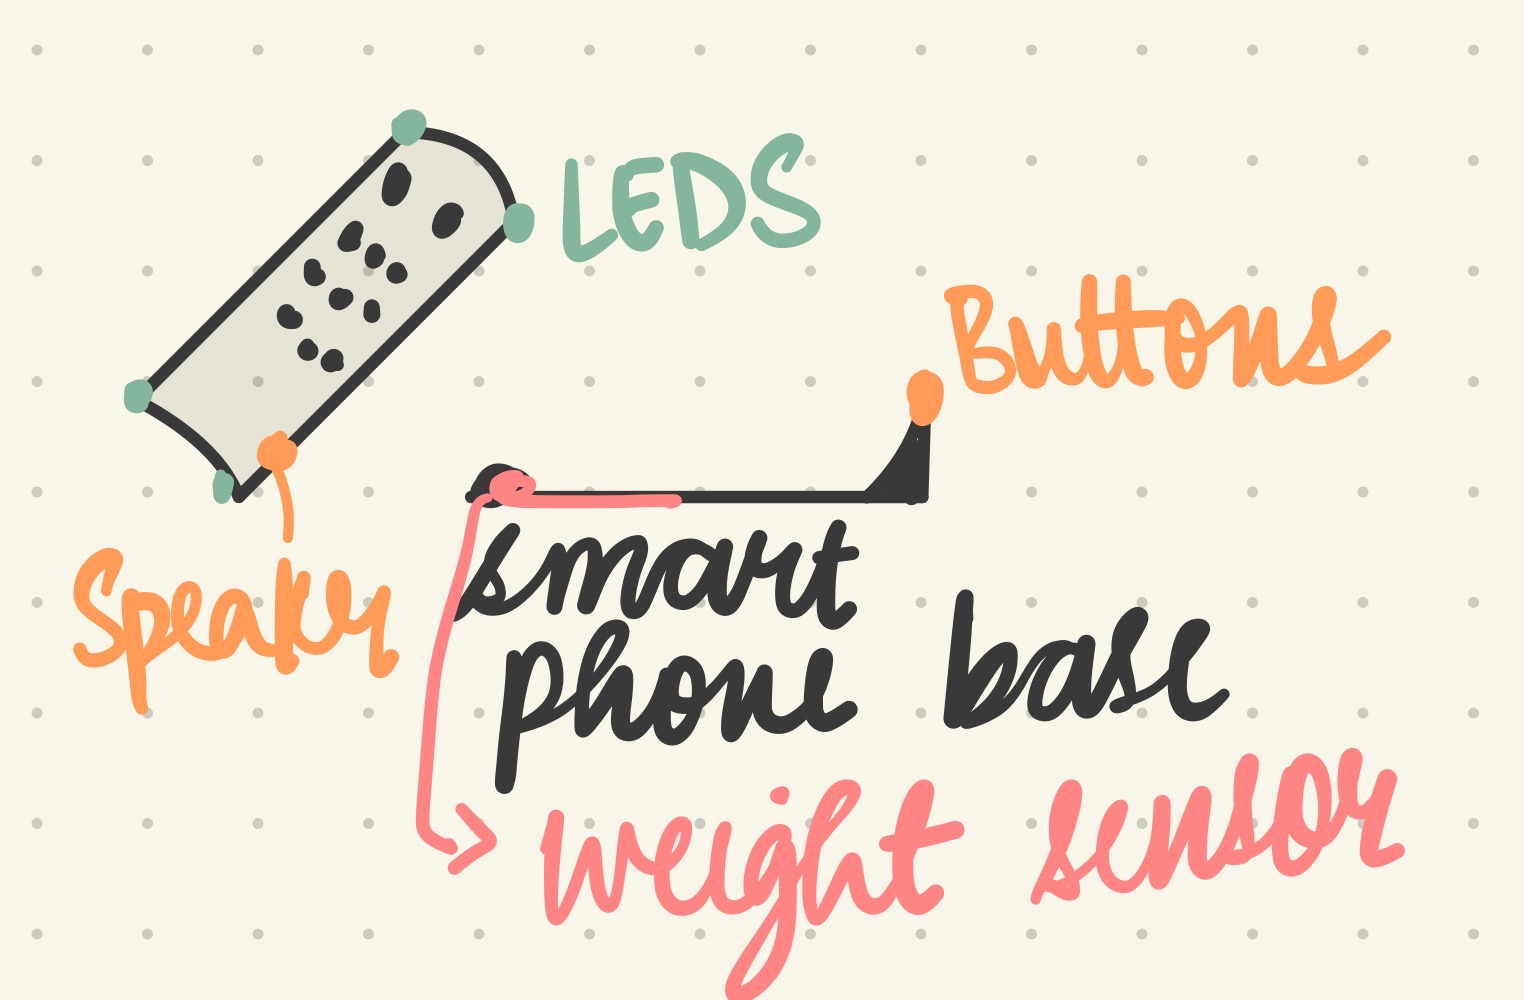 LEDS
Buttons
Speaker
smart
phone base
weight sensor